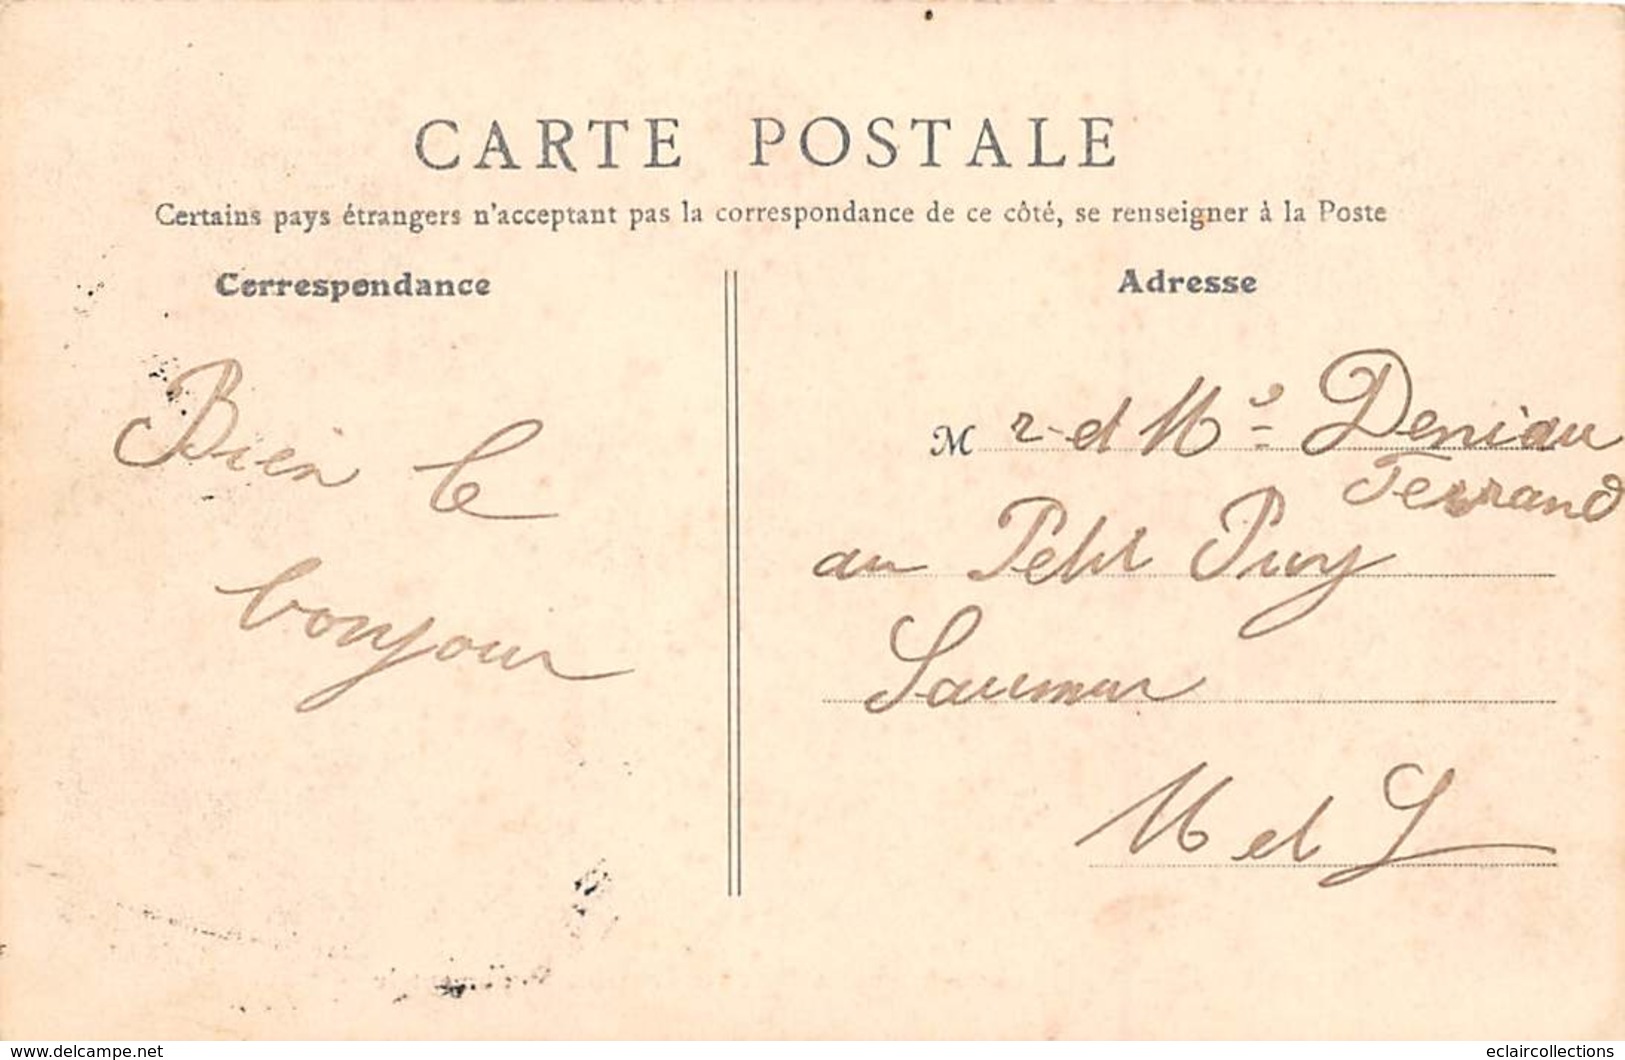 CARTE POSTALE
Certains pays étrangers n'acceptant pas la correspondance de ce côté, se renseigner à la Poste
Correspondance
Bien le
bonjour
Adresse
M r et Me Deniau
Ferrand
au Petit Puy
Saumur
M et L
www.delcampe.net
eclaircollections